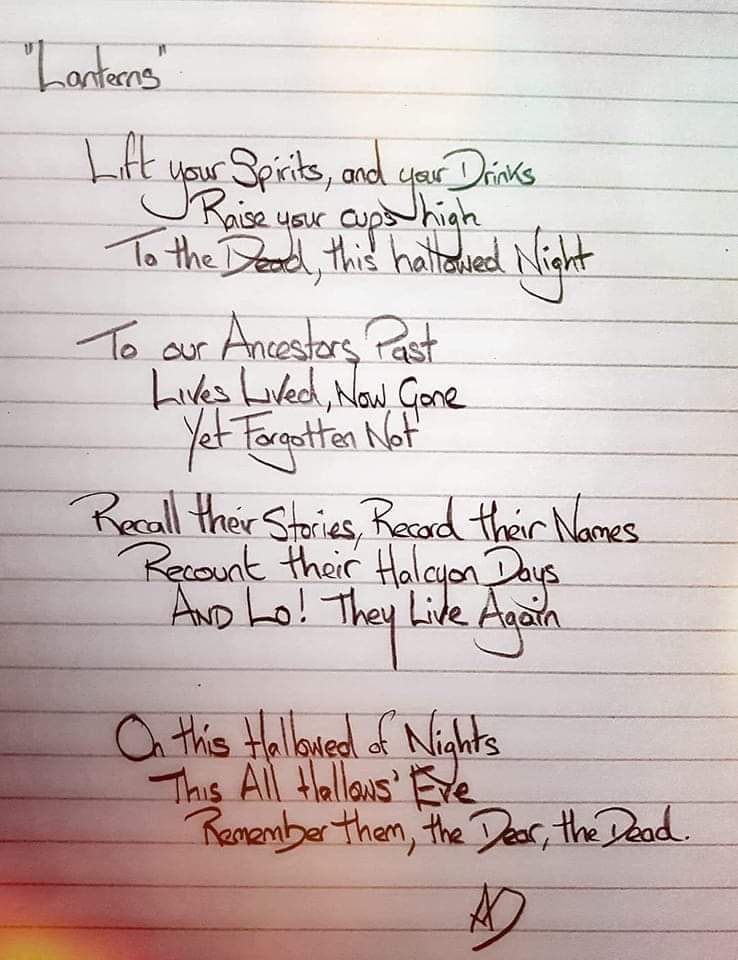 "Lanterns"
Lift your Spirits, and your Drinks
Raise your cups high
To the Dead, this hallowed Night
To our Ancestors Past
Lives Lived, Now Gone
Yet Forgotten Not
Recall their Stories, Record their Names
Recount their Halcyon Days
AND Lo! They Live Again
On this Hallowed of Nights
This All Hallows' Eve
Remember them, the Dear, the Dead.
AD